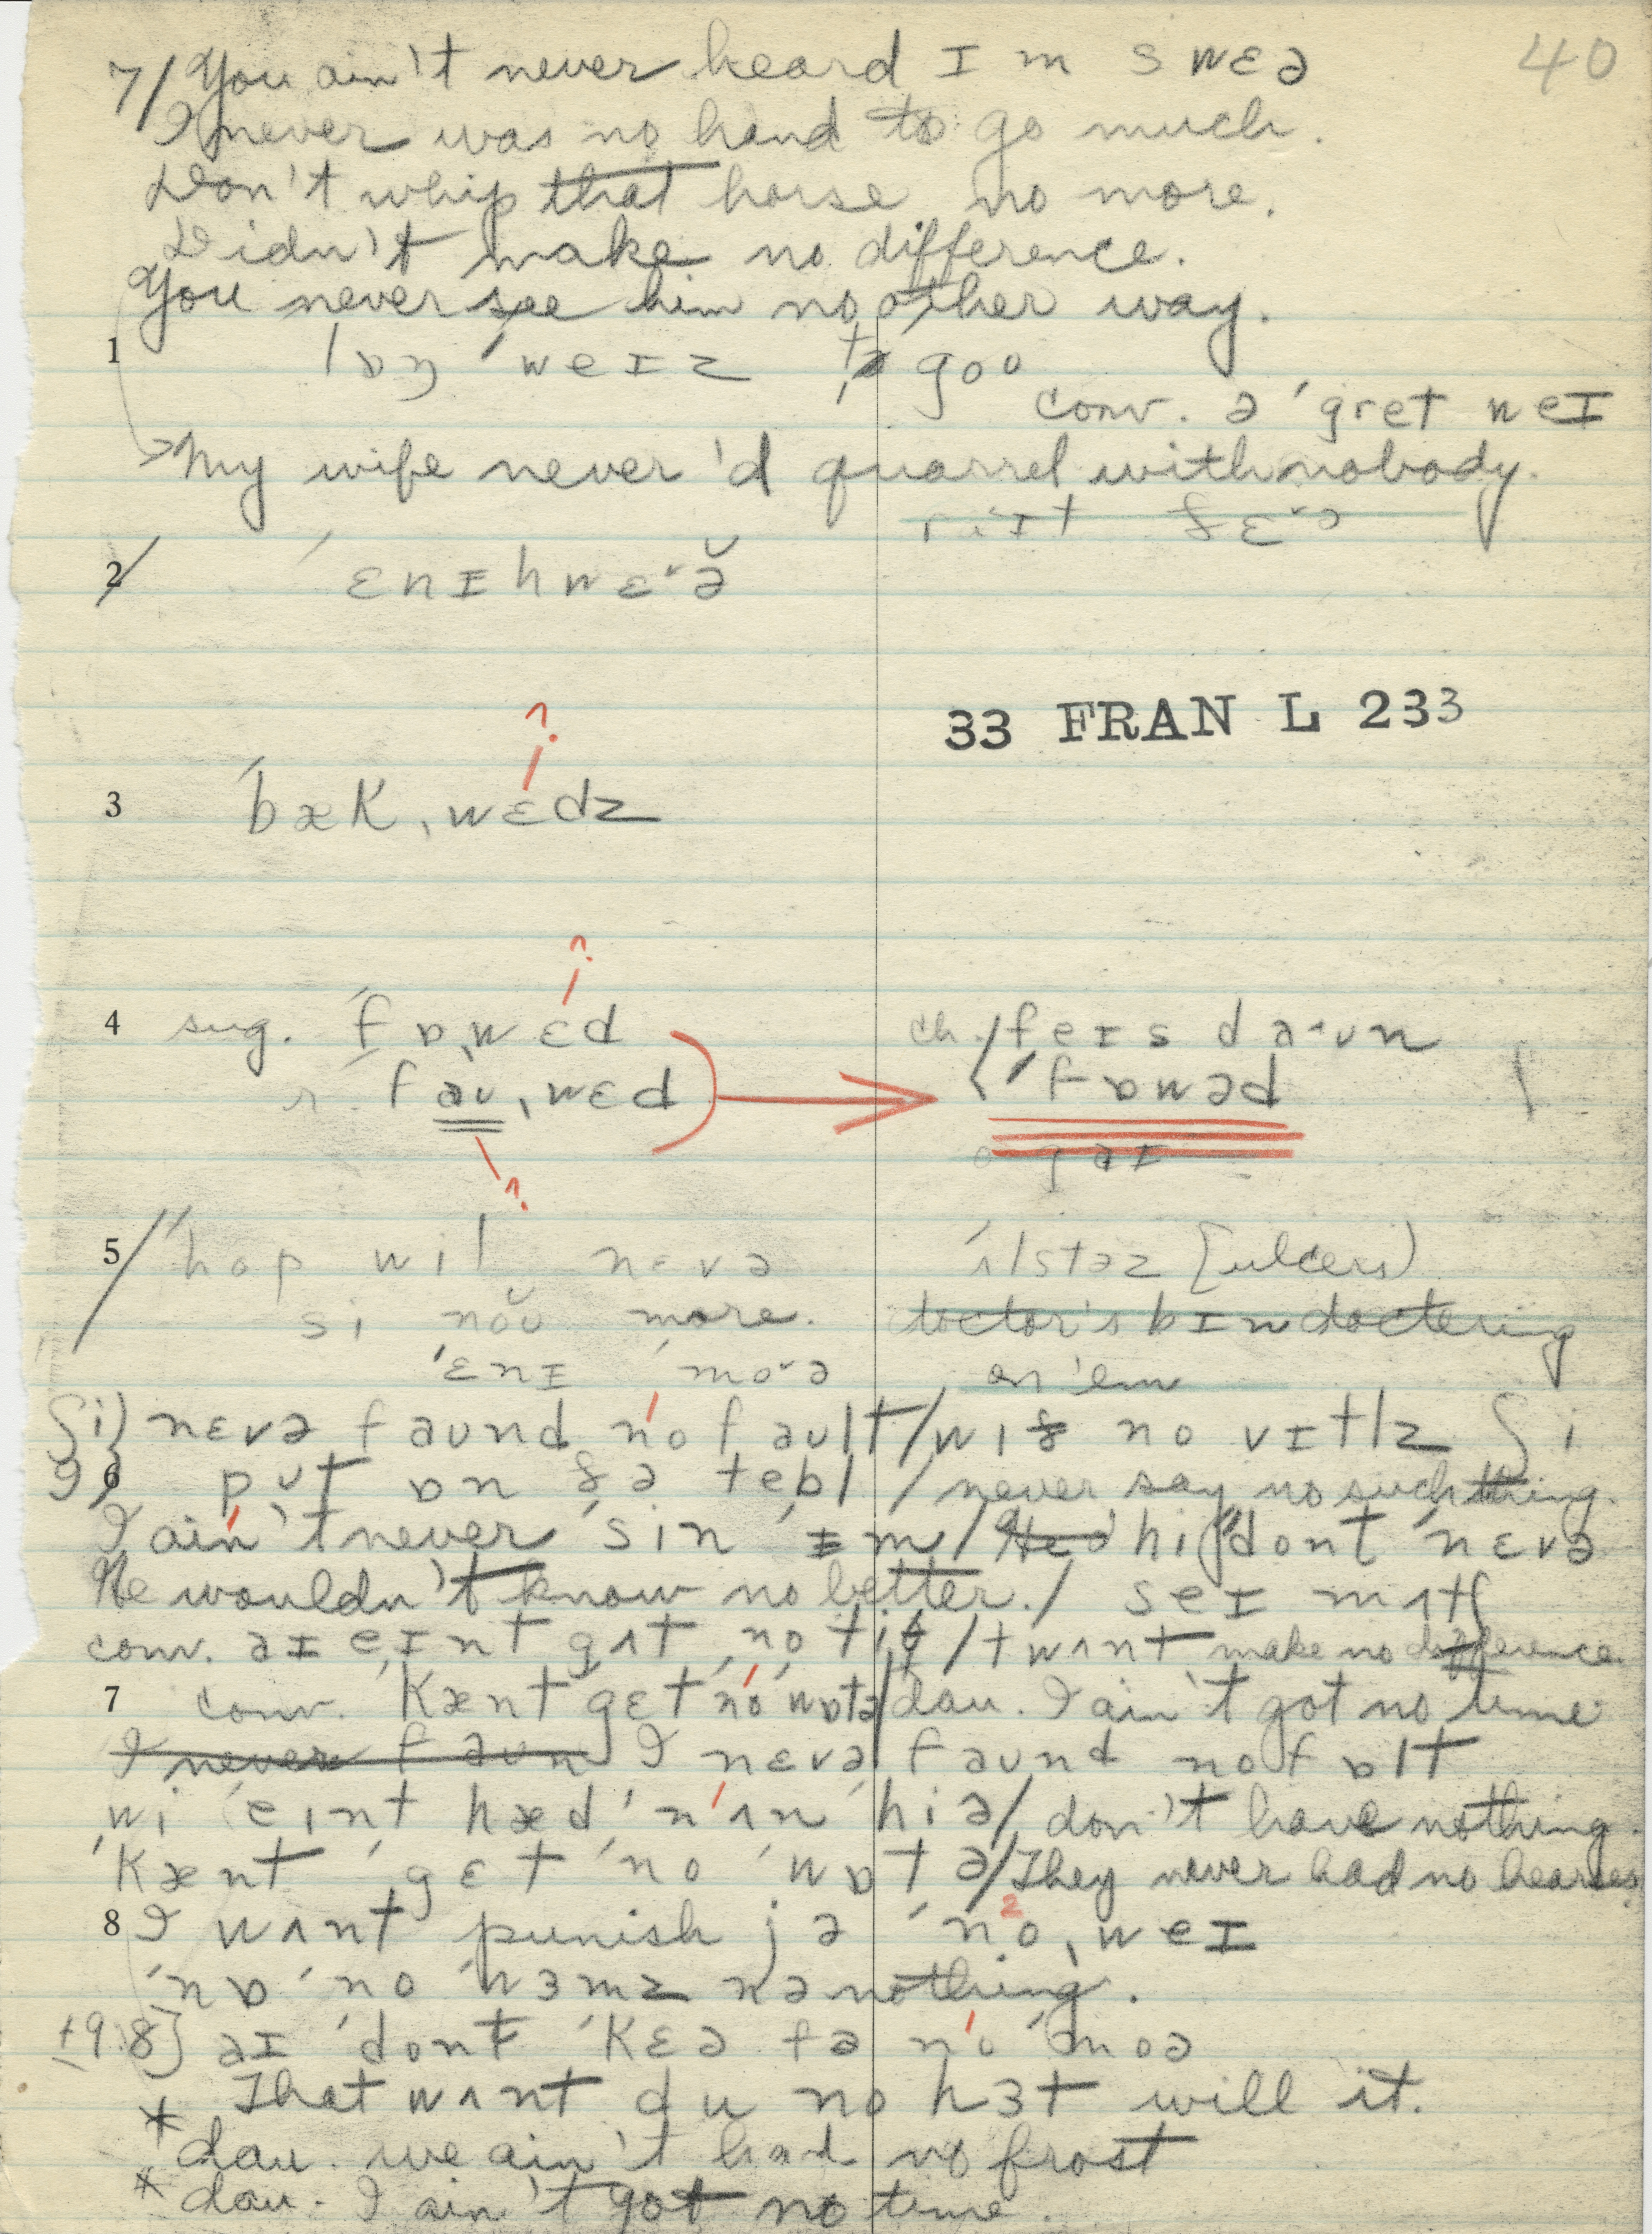 40
7/ You ain't never heard ɪm swɛə
I never was no hand to go much.
Don't whip that horse no more.
Didn't make no difference.
You never see him no other way.
1 lɒŋ ˈweɪz tə goʊ
conv. ə ˈgret weɪ
My wife never'd quarrel with nobody.
2 ˈɛnɪhwɛ˅ə̆
33 FRAN L 233
?
3 ˈbæk ˌwɛdz
?
4 sug. ˈfɒˌwɛd ch. ˈfeɪs daʊn
r. ˈfaʊˌwɛd → ˈfɒwəd
?
5 ˈhop wil nɛvə ˈʌlstəz [ulcers)
si nŏŭ more. doctor's bɪn doctering
ˈɛnɪ ˈmo˅ə on 'em
ʃi) nɛvə faʊnd no faʊlt / wɪð no vɪtlz ʃi
6 pʊt ɒn ðə tebl / never say no such thing.
I ain't never ˈsin ɪm / He hi ˈdont ˈnɛvə
He wouldn't know no better. / seɪ mʌtʃ
conv. aɪ eɪnt gʌt no ti / twʌnt make no difference
7 conv. kænt gɛt no wɒtə / dau. I ain't got no time
I never faʊn I nɛvə faʊnd no fɒlt
wi ˈeɪnt hæd ˈnʌn hiə / don't have nothing.
ˈkænt ˈgɛt ˈno ˈwɒtə / They never had no hearses
2
8 I wʌnt punish jə ˈnoˌweɪ
ˈnɒ ˈno ˈwɜmz nə nothing.
+9.8] aɪ ˈdont ˈkɛə fə no ˈmoə
That wʌnt du no hɜt will it.
* dau. we ain't had no frost
* dau. I ain't got no time.